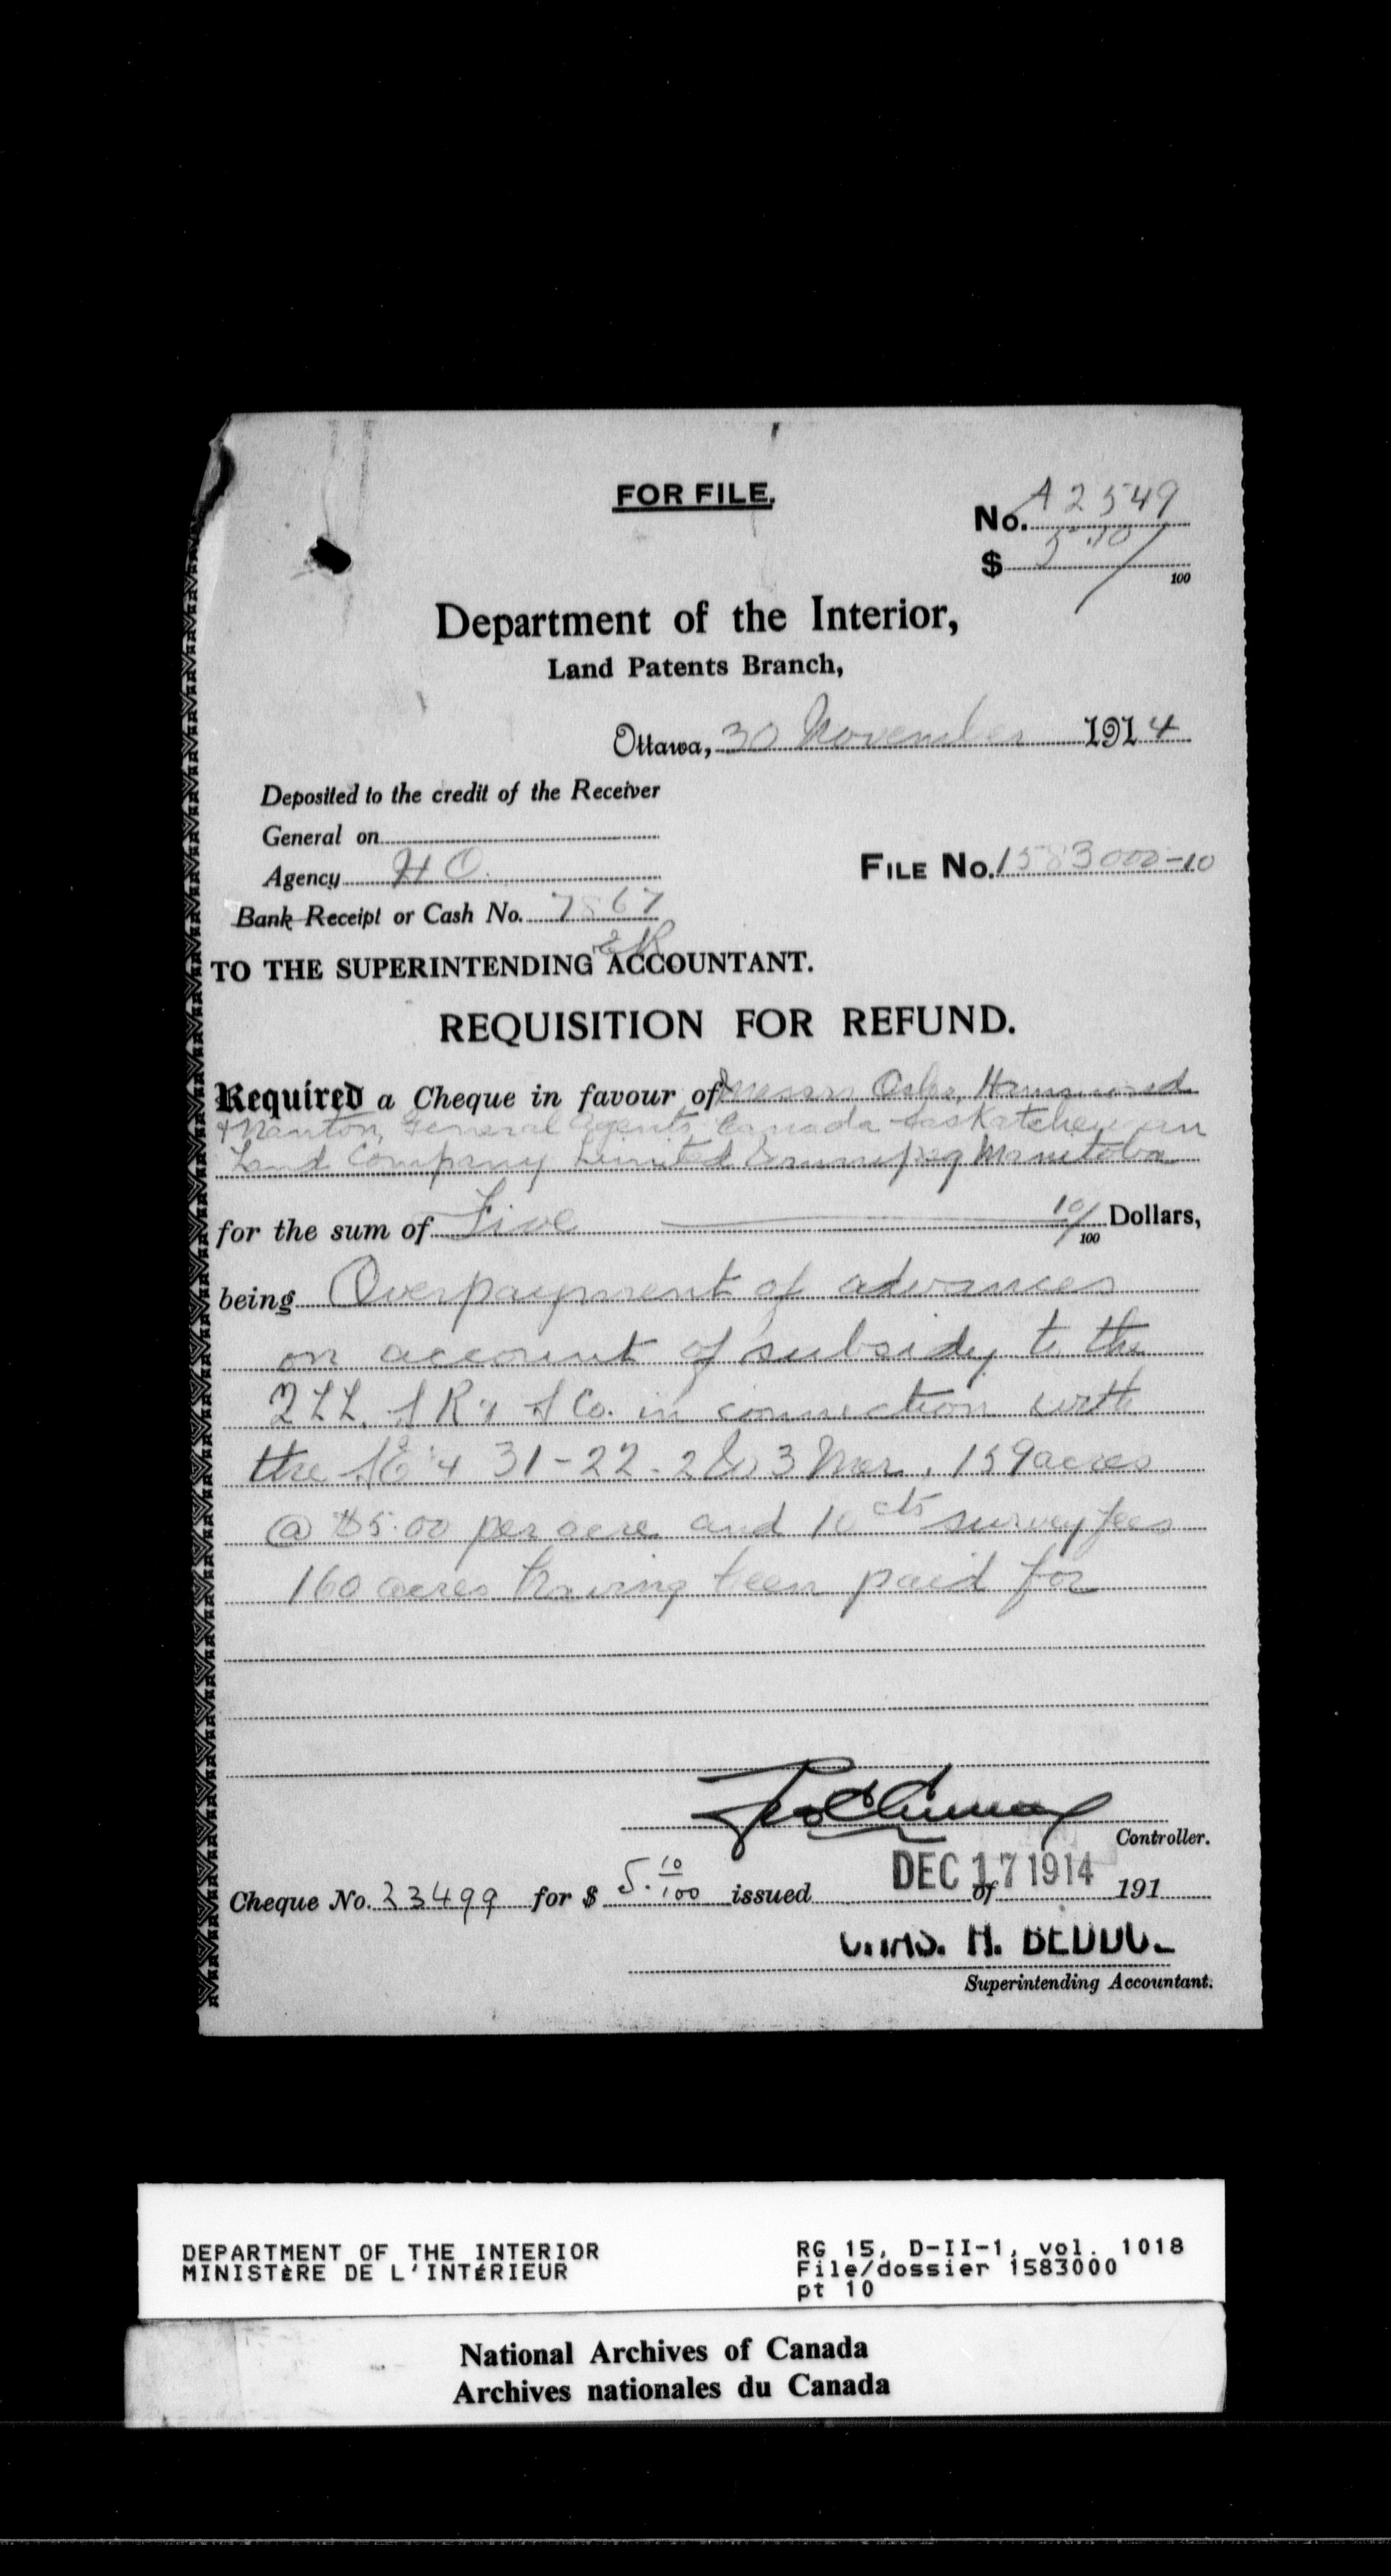 FOR FILE.
No. A2549
$ 5.10/100
Department of the Interior,
Land Patents Branch,
Ottawa, 30 November 1914
Deposited to the credit of the Receiver
General on
Agency H O.
FILE No. 1583000-10
Bank Receipt or Cash No. 7867
TO THE SUPERINTENDING ACCOUNTANT.
REQUISITION FOR REFUND.
Required a Cheque in favour of Messrs Osler, Hammond
& Nanton, General Agents, Canada Saskatchewan
Land Company Limited Winnipeg Manitoba
for the sum of Five 10/100 Dollars,
being Overpayment of advances
on account of subsidy to the
2 L L. S R & S Co. in connection with
the SE 4 31-22-2 3 Mer. 159 acres
@ $5.00 per acre and 10 cts survey fees
160 acres having been paid for
Controller.
Cheque No. 23499 for $ 5. 10/100 issued DEC 17 1914 of 191
CHAS. H. BEDDOE
Superintending Accountant.
DEPARTMENT OF THE INTERIOR
MINISTÈRE DE L'INTÉRIEUR
RG 15, D-II-1, vol. 1018
File/dossier 1583000
pt 10
National Archives of Canada
Archives nationales du Canada